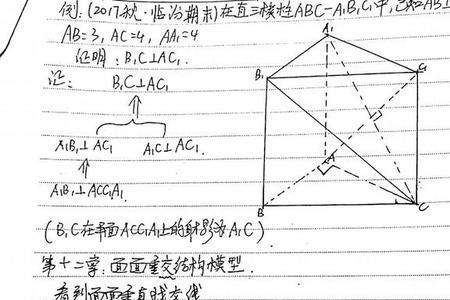 例:(2017秋·临汾期末)在直三棱柱ABC-A₁B₁C₁中,已知AB⊥
AB=3, AC=4, AA₁=4
证明:B₁C⊥AC₁.
B₁C⊥AC₁
⇑
A₁B₁⊥AC₁ A₁C⊥AC₁.
⇑
A₁B₁⊥ACC₁A₁
A₁
B₁
C₁
A
B
C
(B₁C在平面ACC₁A₁上的射影为A₁C)
第十二章:面面垂交结构模型.
看到面面垂直找交线